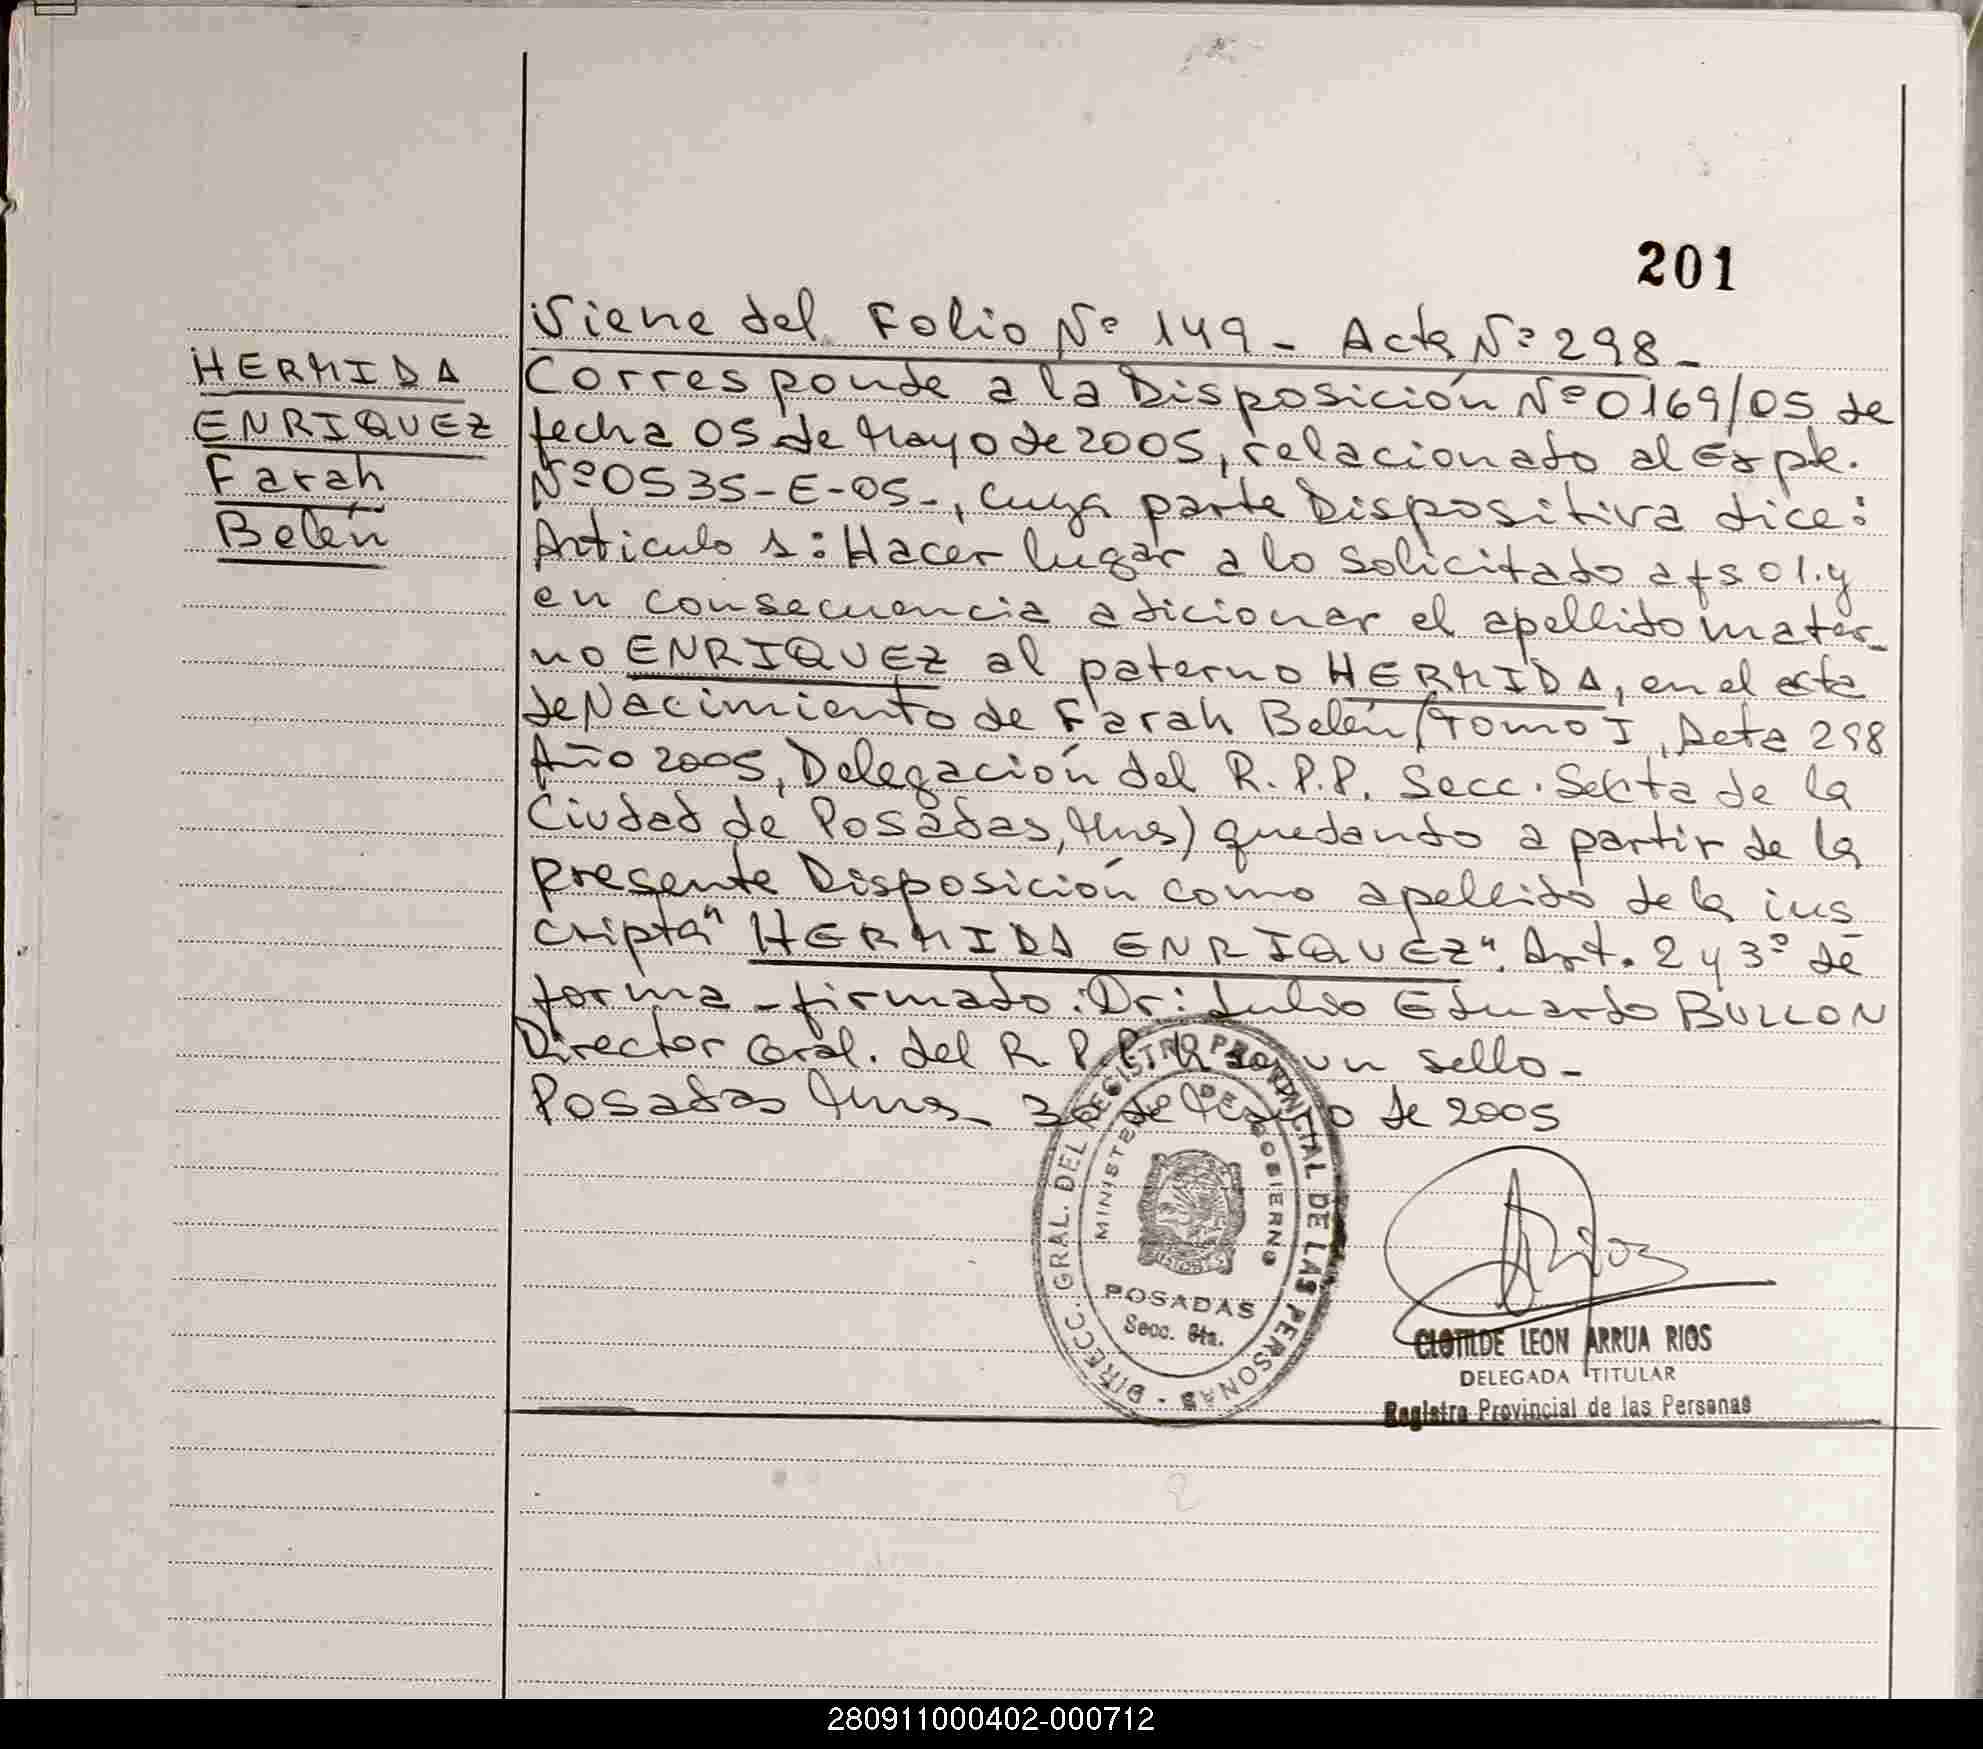 201
Viene del Folio Nº 149 - Acta Nº 298 -
HERMIDA
ENRIQUEZ
Farah
Belén
Corresponde a la Disposición Nº 0169/05 de
fecha 05 de Mayo de 2005, relacionado al Expte.
Nº 0535-E-05-, cuya parte Dispositiva dice:
Articulo 1: Hacer lugar a lo solicitado a fs 01. y
en consecuencia adicionar el apellido mater_
no ENRIQUEZ al paterno HERMIDA, en el acta
de Nacimiento de Farah Belén (Tomo I, Acta 298
Año 2005, Delegación del R.P.P. Secc. Sexta de la
Ciudad de Posadas, Mns) quedando a partir de la
presente Disposición como apellido de la ins
cripta "HERMIDA ENRIQUEZ". Art. 2 y 3º de
forma - firmado: Dr: Julio Eduardo BULLON
Director Gral. del R.P.P. Hay un sello -
Posadas Mns - 30 de de 2005
DIRECC. GRAL. DEL REGISTRO PROVINCIAL DE LAS PERSONAS
MINISTERIO DE GOBIERNO
POSADAS
Secc. 6ta.
CLOTILDE LEON ARRUA RIOS
DELEGADA TITULAR
Registro Provincial de las Personas
280911000402-000712